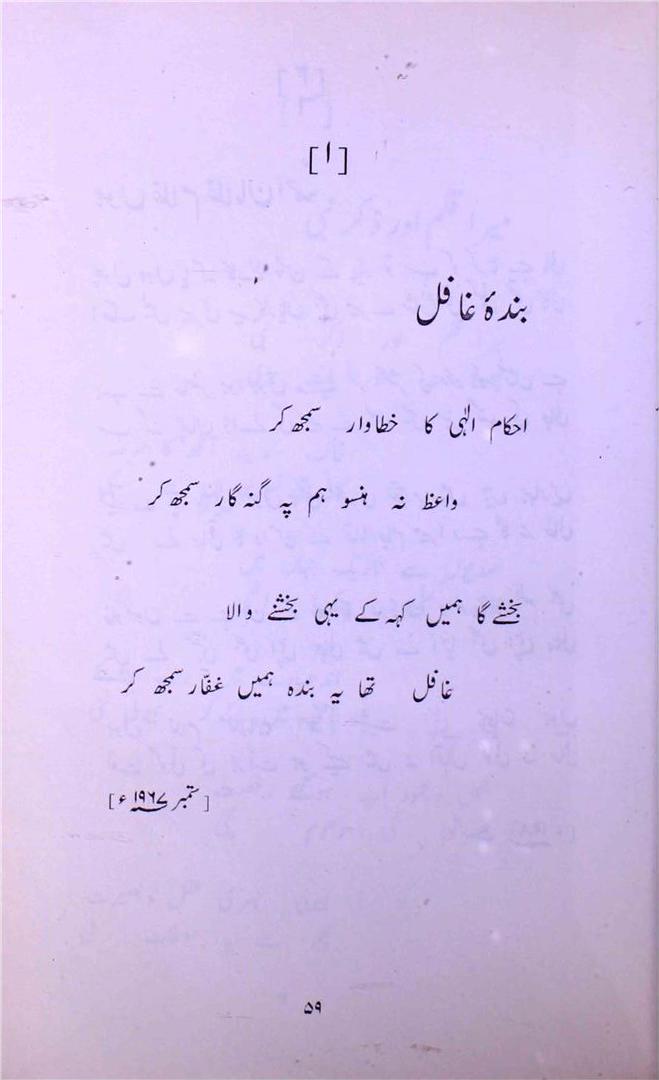 [۱]
بندۂ غافل
احکام الٰہی کا خطاوار سمجھ کر
واعظ نہ ہنسو ہم پہ گنہ گار سمجھ کر
بخشے گا ہمیں کہہ کے یہی بخشنے والا
غافل تھا یہ بندہ ہمیں غفّار سمجھ کر
[ستمبر ۱۹۶۷ء]
۵۹